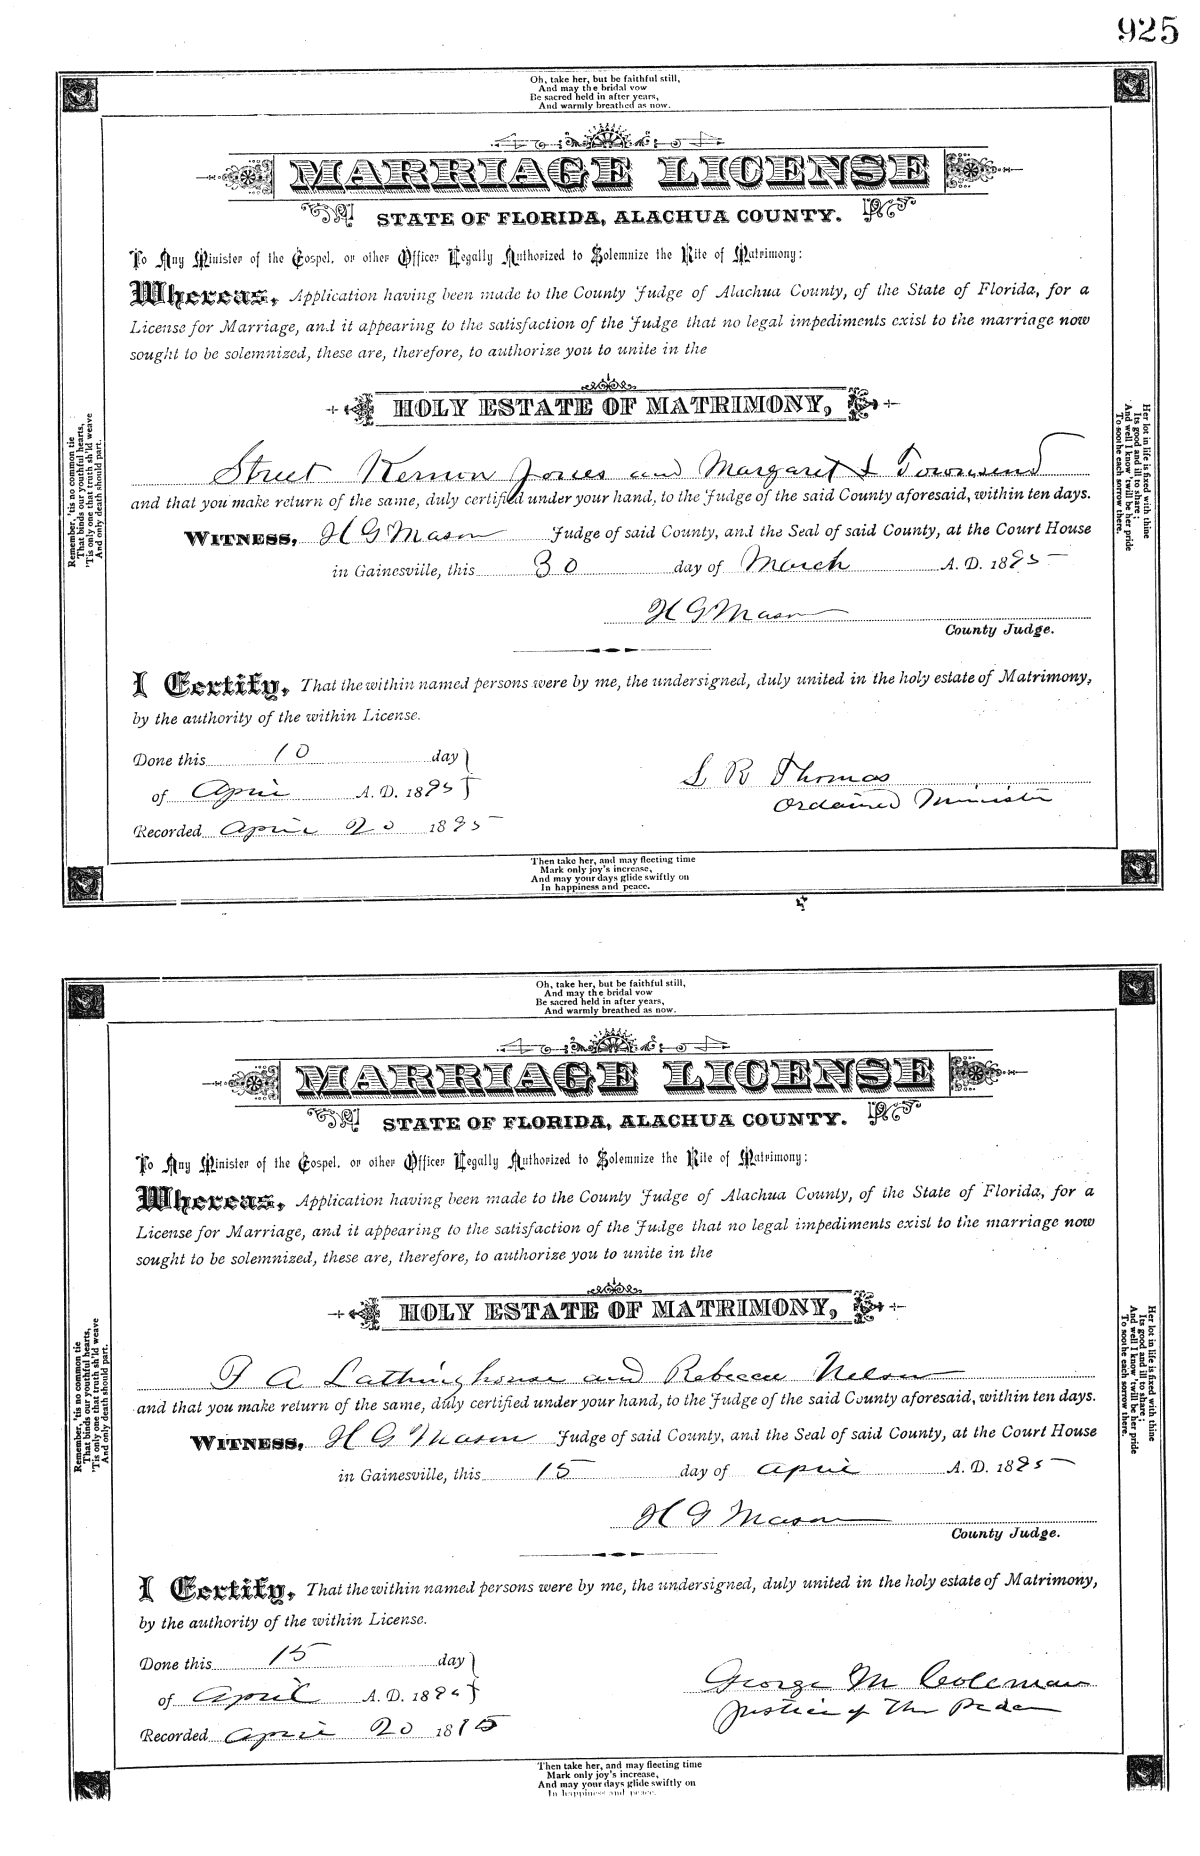 925
Oh, take her, but be faithful still,
And may the bridal vow
Be sacred held in after years,
And warmly breathed as now.
MARRIAGE LICENSE
STATE OF FLORIDA, ALACHUA COUNTY.
To Any Minister of the Gospel, or other Officer Legally Authorized to Solemnize the Rite of Matrimony:
Whereas, Application having been made to the County Judge of Alachua County, of the State of Florida, for a
License for Marriage, and it appearing to the satisfaction of the Judge that no legal impediments exist to the marriage now
sought to be solemnized, these are, therefore, to authorize you to unite in the
HOLY ESTATE OF MATRIMONY,
Street Kernon Jones and Margaret L Townsend
and that you make return of the same, duly certified under your hand, to the Judge of the said County aforesaid, within ten days.
WITNESS, H G Mason Judge of said County, and the Seal of said County, at the Court House
in Gainesville, this 30 day of March A. D. 1895
H G Mason
County Judge.
I Certify, That the within named persons were by me, the undersigned, duly united in the holy estate of Matrimony,
by the authority of the within License.
Done this 10 day
of April A. D. 1895
Recorded April 20 1895
L R Thomas
Ordained Minister
Remember, 'tis no common tie
That binds our youthful hearts,
'Tis only one that truth sh'ld weave
And only death should part.
Her lot in life is fixed with thine
Its good and ill to share;
And well I know 'twill be her pride
To soothe each sorrow there.
Then take her, and may fleeting time
Mark only joy's increase,
And may your days glide swiftly on
In happiness and peace.
Oh, take her, but be faithful still,
And may the bridal vow
Be sacred held in after years,
And warmly breathed as now.
MARRIAGE LICENSE
STATE OF FLORIDA, ALACHUA COUNTY.
To Any Minister of the Gospel, or other Officer Legally Authorized to Solemnize the Rite of Matrimony:
Whereas, Application having been made to the County Judge of Alachua County, of the State of Florida, for a
License for Marriage, and it appearing to the satisfaction of the Judge that no legal impediments exist to the marriage now
sought to be solemnized, these are, therefore, to authorize you to unite in the
HOLY ESTATE OF MATRIMONY,
A Lathinghouse and Rebecca Nelson
and that you make return of the same, duly certified under your hand, to the Judge of the said County aforesaid, within ten days.
WITNESS, H G Mason Judge of said County, and the Seal of said County, at the Court House
in Gainesville, this 15 day of April A. D. 1895
H G Mason
County Judge.
I Certify, That the within named persons were by me, the undersigned, duly united in the holy estate of Matrimony,
by the authority of the within License.
Done this 15 day
of April A. D. 1895
Recorded April 20 1895
George M Coleman
Justice of The Peace
Remember, 'tis no common tie
That binds our youthful hearts,
'Tis only one that truth sh'ld weave
And only death should part.
Her lot in life is fixed with thine
Its good and ill to share;
And well I know 'twill be her pride
To soothe each sorrow there.
Then take her, and may fleeting time
Mark only joy's increase,
And may your days glide swiftly on
In happiness and peace.